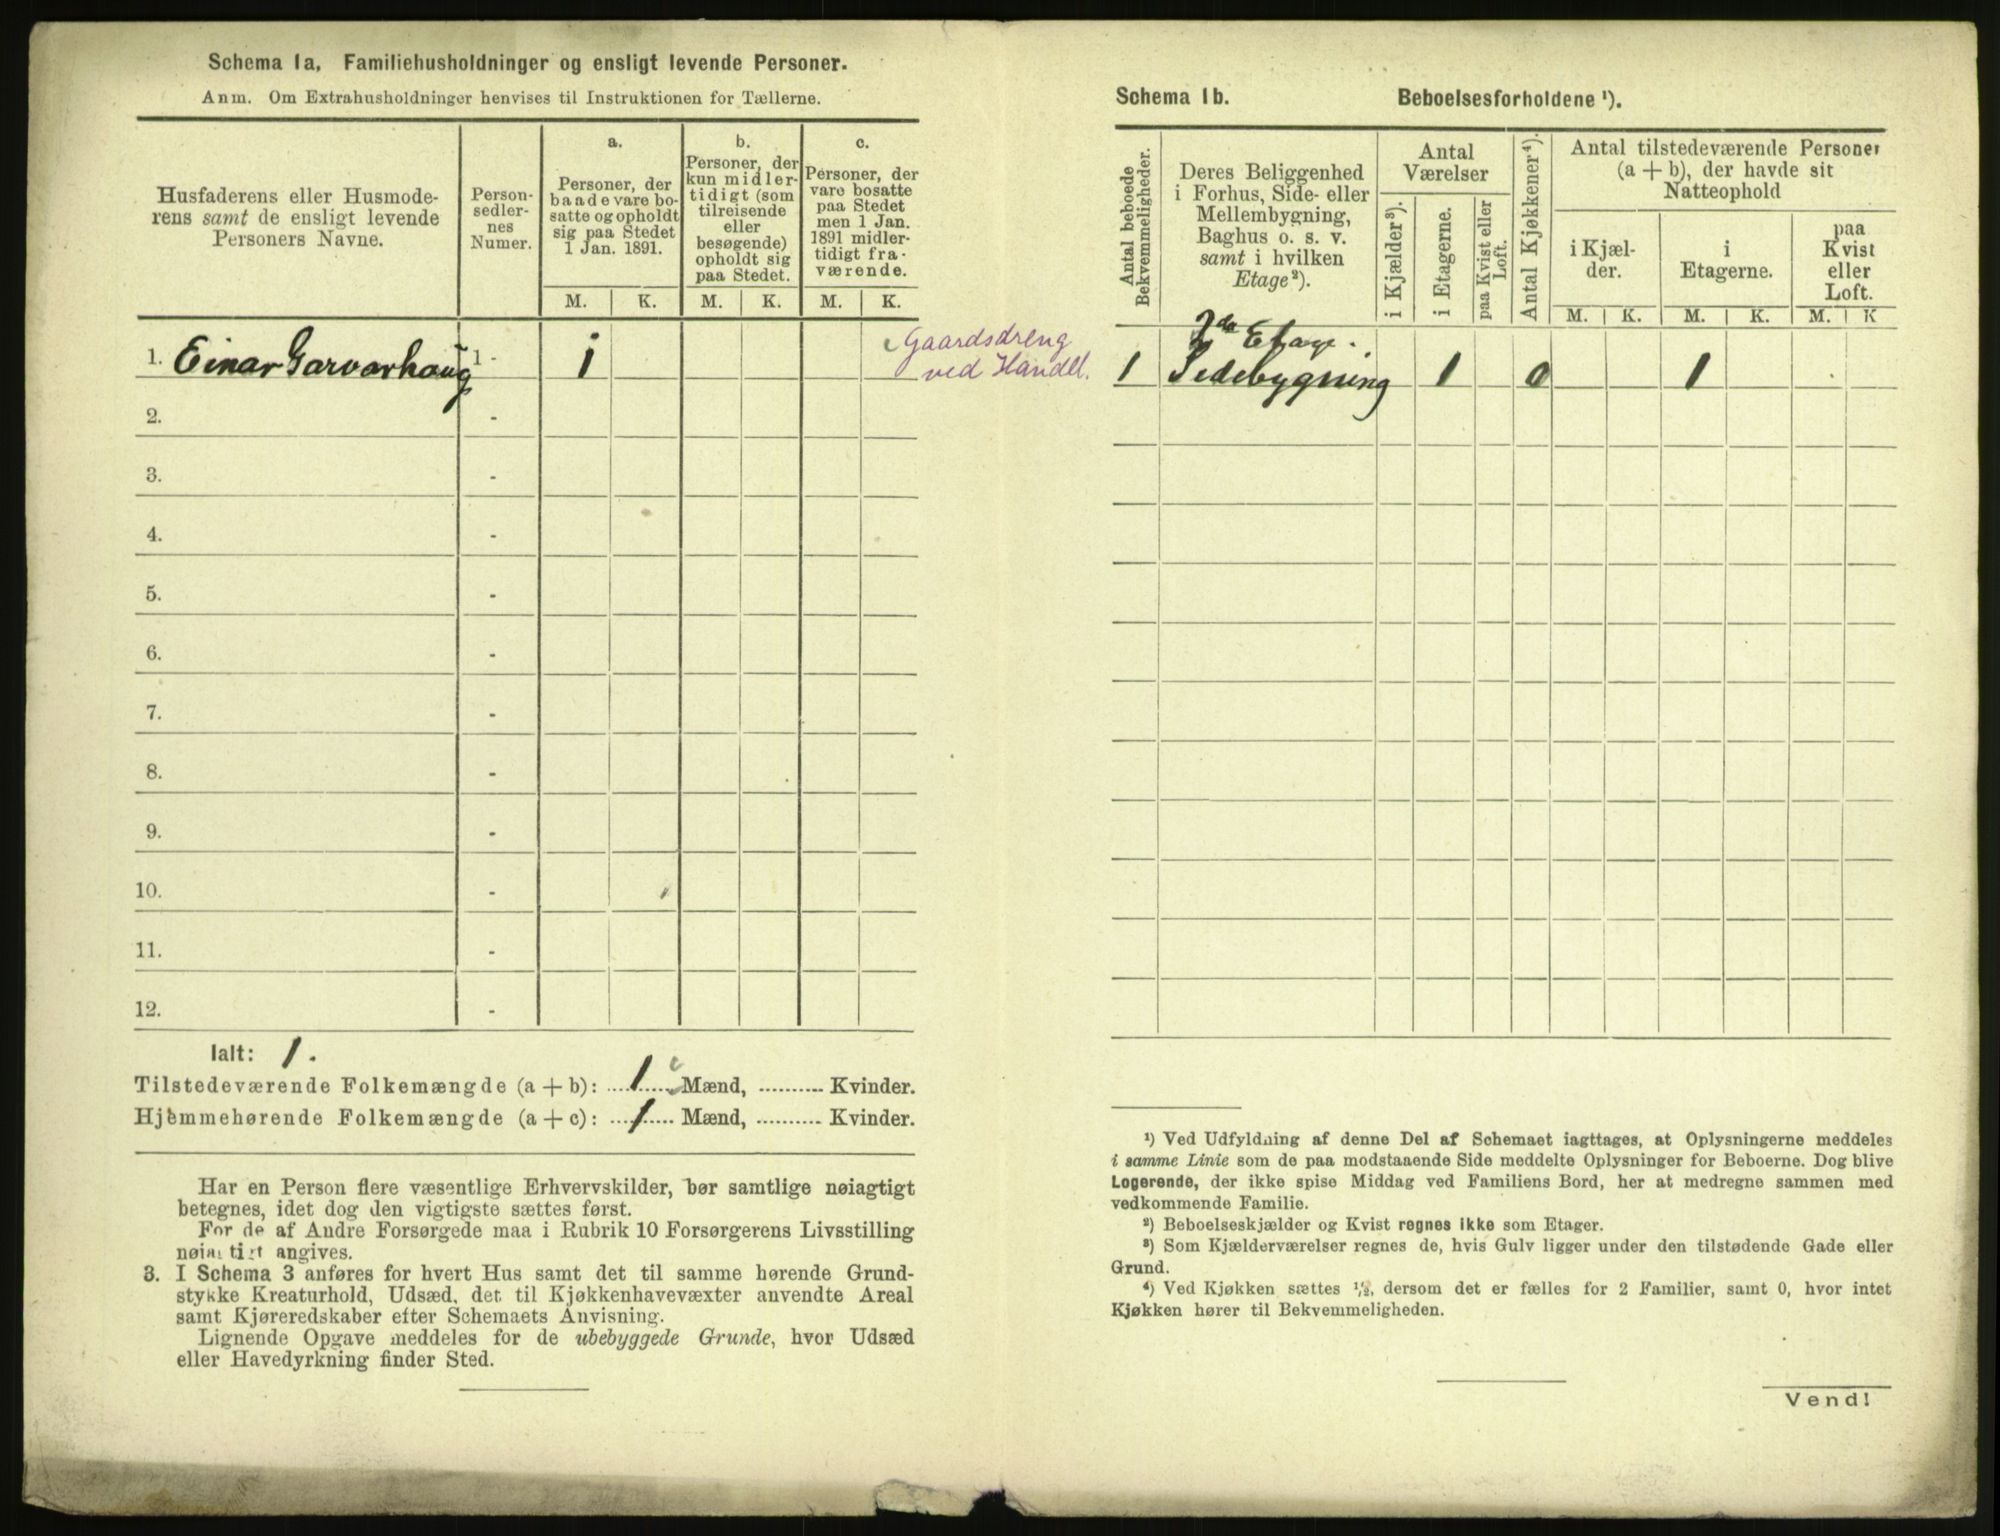 Schema 1a, Familiehusholdninger og ensligt levende Personer.
Anm. Om Extrahusholdninger henvises til Instruktionen for Tællerne.
Husfaderens eller Husmode-
rens samt de ensligt levende
Personers Navne.
Person-
sedler-
nes
Numer.
a.
Personer, der
baade vare bo-
satte og opholdt
sig paa Stedet
1 Jan. 1891.
b.
Personer, der
kun midler-
tidigt (som
tilreisende
eller
besøgende)
opholdt sig
paa Stedet.
c.
Personer, der
vare bosatte
paa Stedet
men 1 Jan.
1891 midler-
tidigt fra-
værende.
M. K. M. K. M. K.
1. Einar Garvarhaug 1 - 1 Gaardsdreng
ved Handel.
2. -
3. -
4. -
5. -
6. -
7. -
8. -
9. -
10. -
11. -
12. -
Ialt: 1.
Tilstedeværende Folkemængde (a + b): 1 Mænd, .......... Kvinder.
Hjemmehørende Folkemængde (a + c): 1 Mænd, .......... Kvinder.
Har en Person flere væsentlige Erhvervskilder, bør samtlige nøiagtigt
betegnes, idet dog den vigtigste sættes først.
For de af Andre Forsørgede maa i Rubrik 10 Forsørgerens Livsstilling
nøiagtigt angives.
3. I Schema 3 anføres for hvert Hus samt det til samme hørende Grund-
stykke Kreaturhold, Udsæd, det til Kjøkkenhavevæxter anvendte Areal
samt Kjøreredskaber efter Schemaets Anvisning.
Lignende Opgave meddeles for de ubebyggede Grunde, hvor Udsæd
eller Havedyrkning finder Sted.
Schema 1b. Beboelsesforholdene ¹).
Antal beboede
Bekvemmeligheder.
Deres Beliggenhed
i Forhus, Side- eller
Mellembygning,
Baghus o. s. v.
samt i hvilken
Etage²).
Antal
Værelser
i Kjælder³).
i Etagerne.
paa Kvist eller
Loft.
Antal Kjøkkener⁴).
Antal tilstedeværende Personer
(a + b), der havde sit
Natteophold
i Kjæl-
der.
i
Etagerne.
paa
Kvist
eller
Loft.
M. K. M. K. M. K
2den Etage.
1 Sidebygning 1 0 1
¹) Ved Udfyldning af denne Del af Schemaet iagttages, at Oplysningerne meddeles
i samme Linie som de paa modstaaende Side meddelte Oplysninger for Beboerne. Dog blive
Logerende, der ikke spise Middag ved Familiens Bord, her at medregne sammen med
vedkommende Familie.
²) Beboelseskjælder og Kvist regnes ikke som Etager.
³) Som Kjælderværelser regnes de, hvis Gulv ligger under den tilstødende Gade eller
Grund.
⁴) Ved Kjøkken sættes ½, dersom det er fælles for 2 Familier, samt 0, hvor intet
Kjøkken hører til Bekvemmeligheden.
Vend!